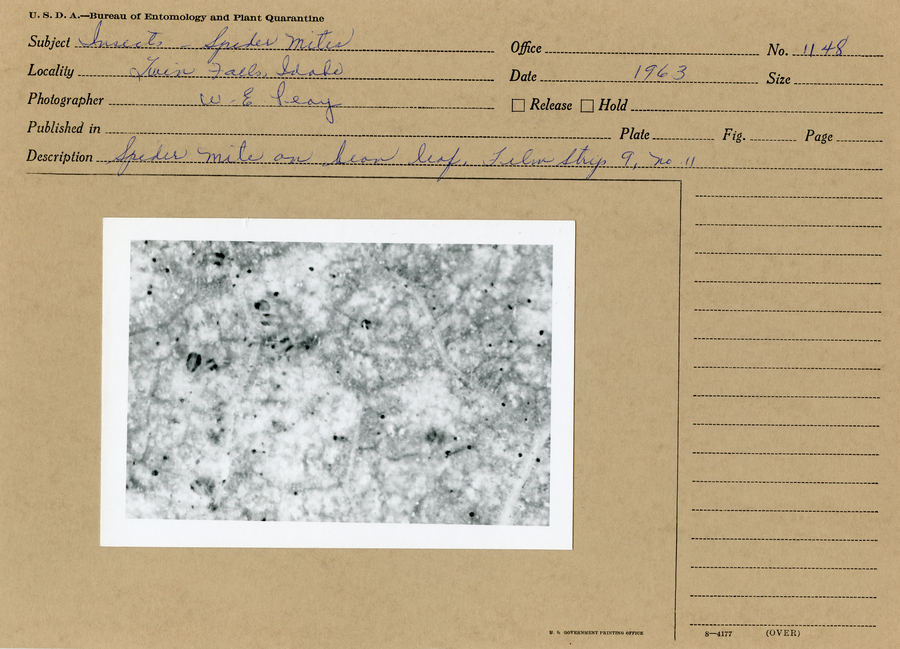 U. S. D. A.—Bureau of Entomology and Plant Quarantine
Subject Insects - Spider Mites Office No. 1148
Locality Twin Falls, Idaho Date 1963 Size
Photographer W. E. Peay Release Hold
Published in Plate Fig. Page
Description Spider mite on bean leaf. Film Strip 9, no. 11
U. S. GOVERNMENT PRINTING OFFICE
8—4177 (OVER)